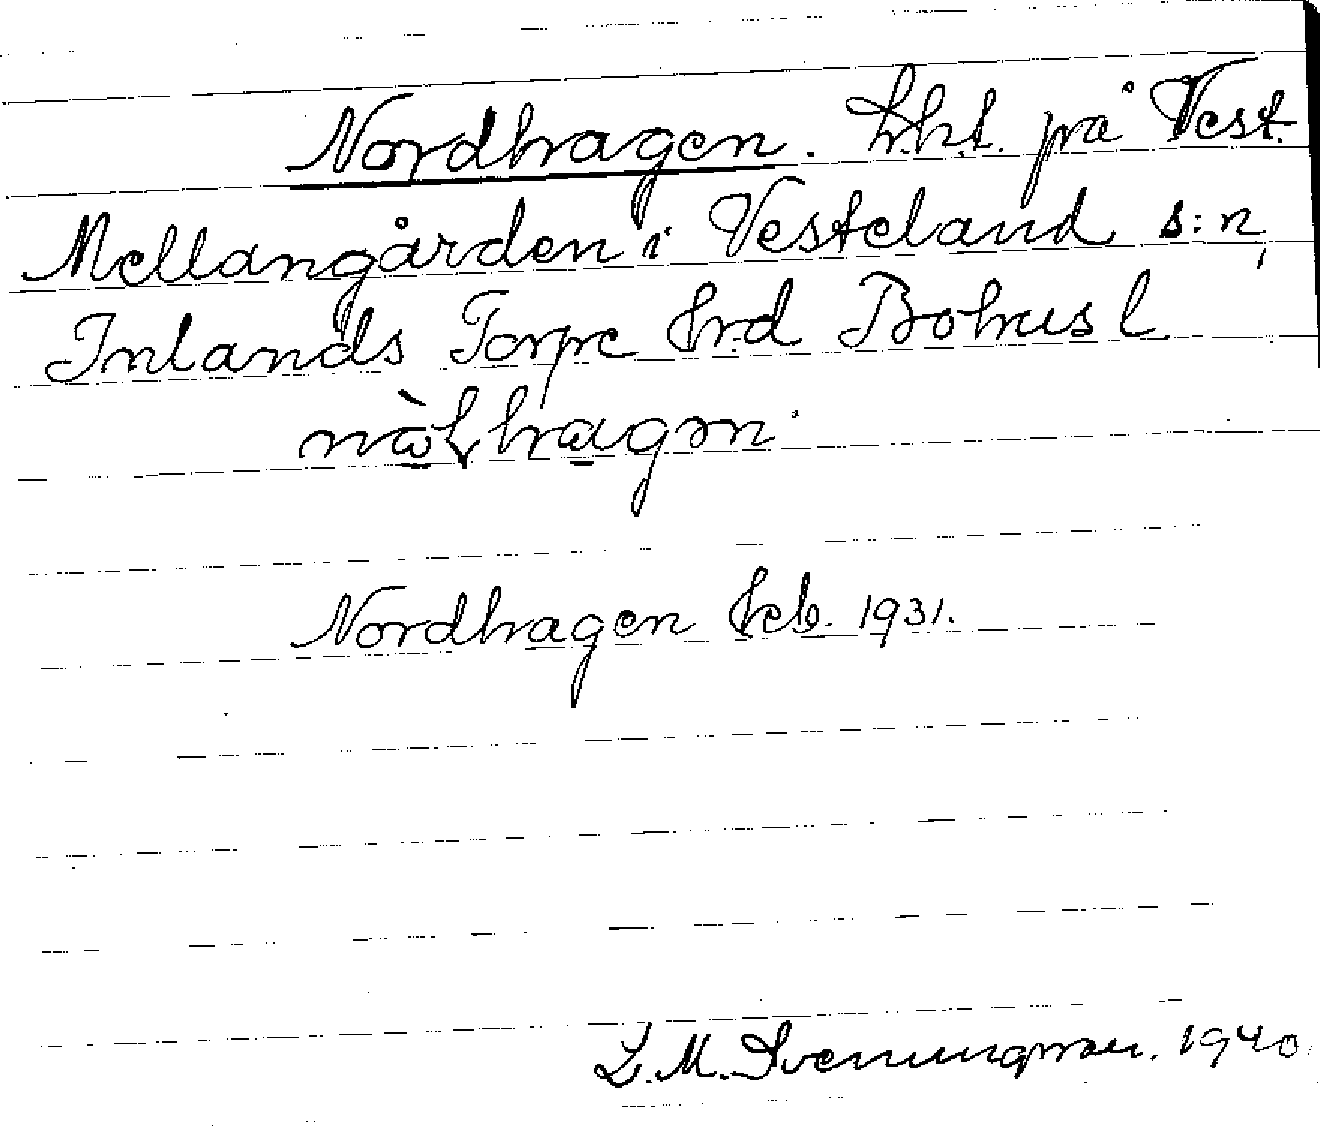 Nordhagen. h.h.t. på Vest.
Mellangården i Vesteland s:n,
Inlands Torpe hrd Bohusl
Nordhagen Feb. 1931.
L. M. Svenungsson. 1940